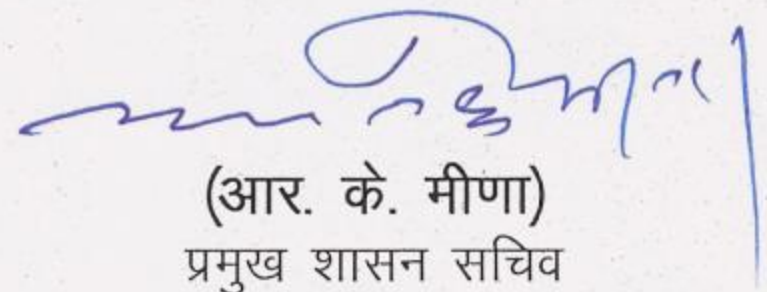 (आर. के. मीणा)
प्रमुख शासन सचिव